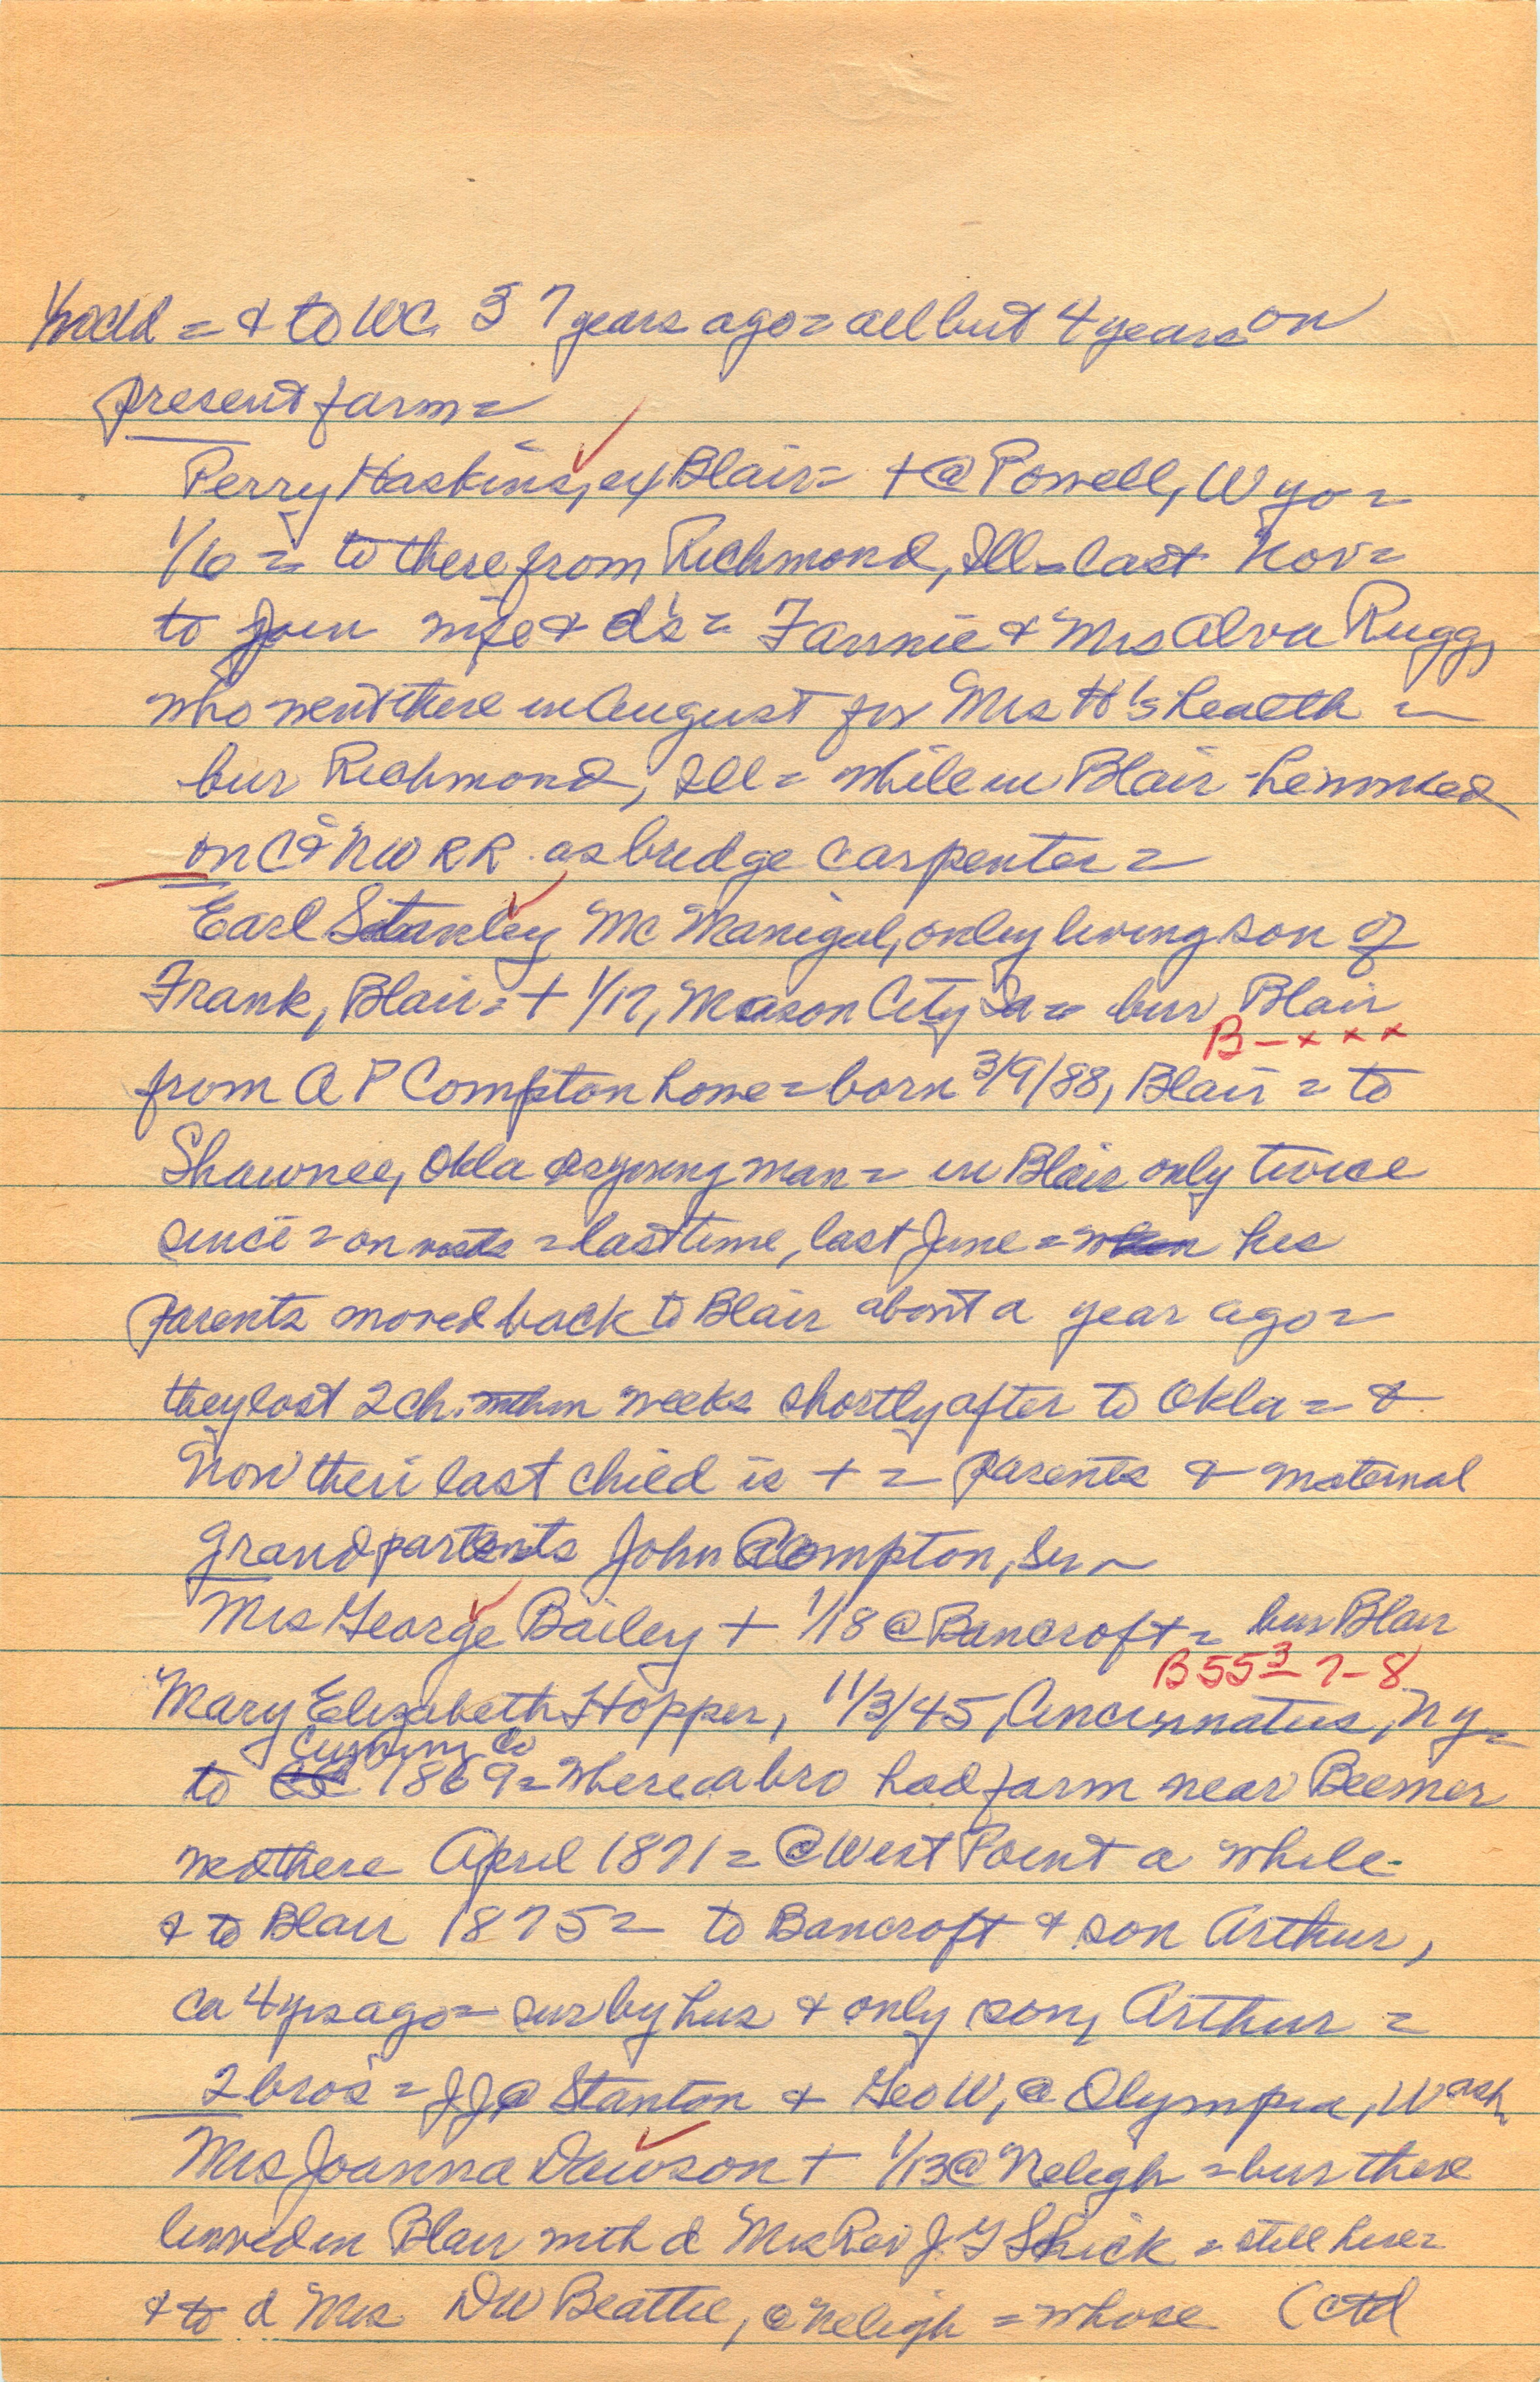 = & to WC 37 years ago = all but 4 years on
present farm =
Perry Haskins, ex Blair = + @ Powell, Wyo =
1/6 = to there from Richmond, Ill = last Nov =
to join wife & d's = Fannie & Mrs Alva Rugg,
who went there in August for Mrs H's health =
bur Richmond, Ill = while in Blair he worked
on C & NW RR as bridge carpenter =
Earl Stanley McManigal, only living son of
Frank, Blair = + 1/17, Mason City Ia = bur Blair
B - x x x
from A P Compton home = born 3/9/88, Blair = to
Shawnee, Okla as young man = in Blair only twice
since = on visits = last time, last June = when his
parents moved back to Blair about a year ago =
they lost 2 ch. within weeks shortly after to Okla = &
now their last child is + = parents & maternal
grandparents John Compton, Sr =
Mrs George Bailey + 1/18 @ Bancroft = bur Blair
B 553 - 7 - 8
Mary Elizabeth Hopper, 11/3/45, Cincinnatus, NY =
Cuming Co
to 1869 = where a bro had farm near Beemer
md there April 1871 = @ West Point a while -
& to Blair 1875 = to Bancroft & son Arthur,
ca 4 yrs ago = sur by hus & only son, Arthur =
2 bros = JJ @ Stanton & Geo W, @ Olympia, Wash
Mrs Joanna Dawson + 1/13 @ Neligh = bur there
lived in Blair with d Mrs Rev J G Shick = still here =
& to d Mrs DW Beattie, @ Neligh = whose (ctd